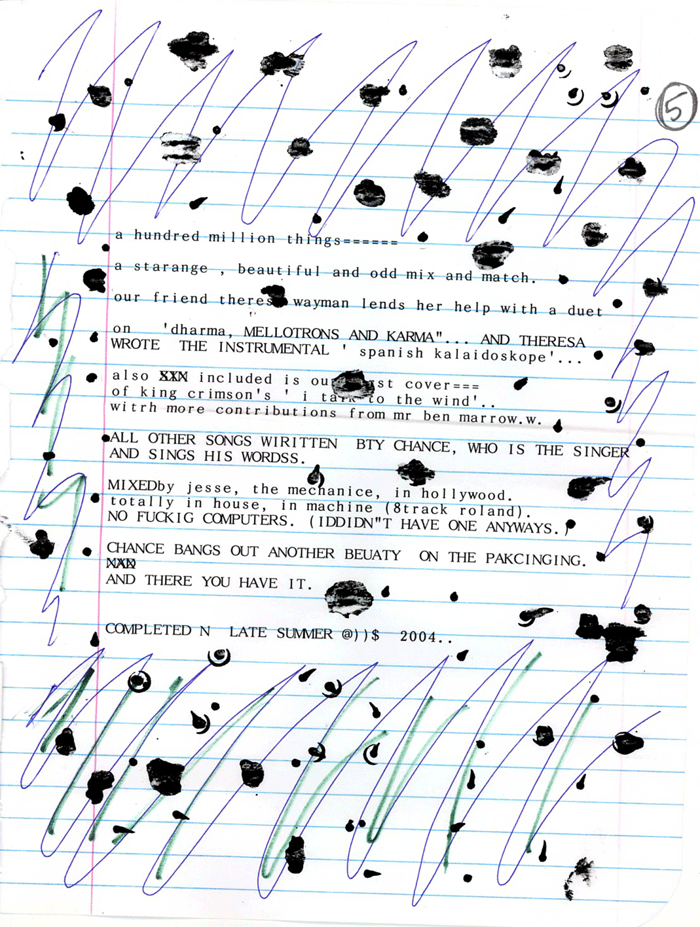 5
a hundred million things======
a starange , beautiful and odd mix and match.
our friend theres wayman lends her help with a duet
on 'dharma, MELLOTRONS AND KARMA"... AND THERESA
WROTE THE INSTRUMENTAL ' spanish kalaidoskope'...
also XXX included is ou st cover===
of king crimson's ' i talk to the wind'..
witrh more contributions from mr ben marrow.w.
ALL OTHER SONGS WIRITTEN BTY CHANCE, WHO IS THE SINGER
AND SINGS HIS WORDSS.
MIXEDby jesse, the mechanice, in hollywood.
totally in house, in machine (8track roland).
NO FUCKIG COMPUTERS. (IDDIDN"T HAVE ONE ANYWAYS.)
CHANCE BANGS OUT ANOTHER BEUATY ON THE PAKCINGING.
AND THERE YOU HAVE IT.
COMPLETED N LATE SUMMER @))$ 2004..